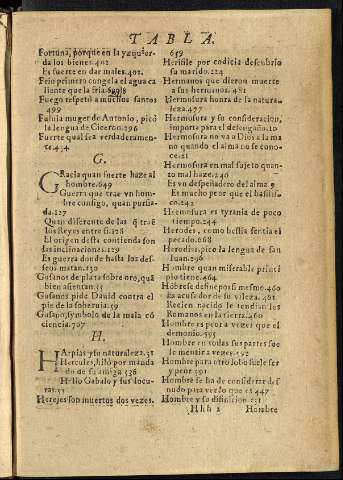 TABLA.
Fortuna, porque en la yzquier-
da los bienes. 402
Es fuerte en dar males. 402.
Frio primero congela el agua ca
liente que la fria.
Fuego respetò a muchos santos
499
Fuluia muger de Antonio, picò
la lengua de Ciceron. 296
Fuerte qual sea verdaderamen-
te. 434
G.
GRacia quan fuerte haze al
hombre. 649
Guerra que trae vn hom-
bre consigo, quan porfia-
da. 127
Quan diferente de las q̃ traẽ
los Reyes entre si. 128
El origen desta contienda son
las inclinaciones. 129
Es guerra donde hasta los des-
seos matan. 130
Gusanos de plata sobre oro, quã
bien assientan. 33
Gusanos pide Dauid contra el
pie de la soberuia. 59
Gusano, symbolo de la mala cõ
ciencia. 707
H.
HArpias y su naturaleza. 32
Hercules, hilò por manda
do de su amiga 536
Helio Gabalo y sus locu-
ras. 33
Herejes son muertos dos vezes.
659
Herifile por codicia descubrio
su marido. 224
Hermanos que dieron muerte
a sus hermanos. 481
Hermosura honra de la natura-
leza. 477
Hermosura y su consideracion,
importa para el desengaño. 10
Hermosura no va a Dios a la ma
no quando el alma no se cono-
ce. 21
Hermosura en mal sujeto quan-
to mal haze. 246
Es vn despeñadero del alma 9
Es mucho peor que el basilis-
co. 242
Hermosura es tyrania de poco
tiempo. 244
Herodes, como bestia sentia el
pecado. 668
Herodias, pico la lengua de san
Iuan. 296
Hombre quan miserable princi
pio tiene. 464
Hõbre se define por si mesmo. 460
Es acusador de su vileza. 461
Rezien nacido le tendian los
Romanos en la tierra. 460
Hombre es peor a vezes que el
demonio. 595
Hombre en todas sus partes sue
le mentir a vezes. 592
Hombre para otro lobo suele ser
y peor 591
Hombre se ha de considerar des
nudo para ver lo que es 447
Hombre y su difinicion. 231
Hhh 2 Hombre